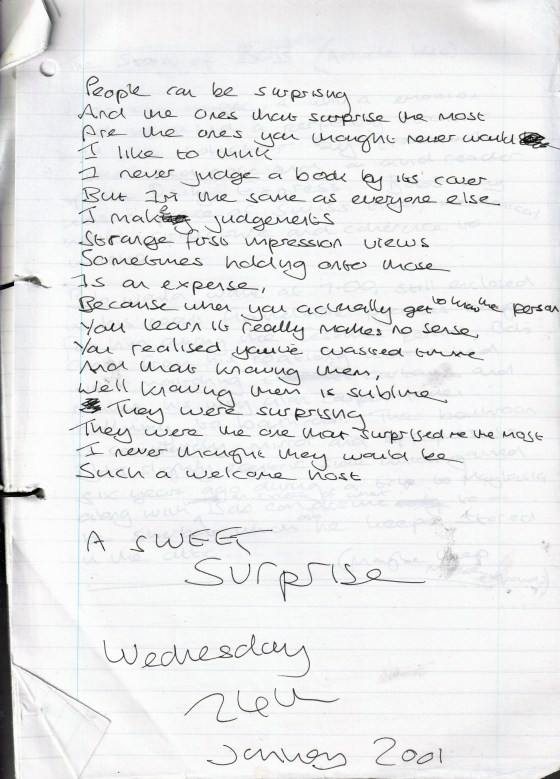 People can be surprising
And the ones that surprise the most
Are the ones you thought never would
I like to think
I never judge a book by its cover
But I'm the same as everyone else
I make judgements
Strange first impression views
Sometimes holding onto those
Is an expense,
Because when you actually get to know the person
You learn it really makes no sense
You realised you've wasted time
And that knowing them,
Well knowing them is sublime
They were surprising
They were the one that surprised me the most
I never thought they would be
Such a welcome host
A SWEET
Surprise
Wednesday
24th
January 2001